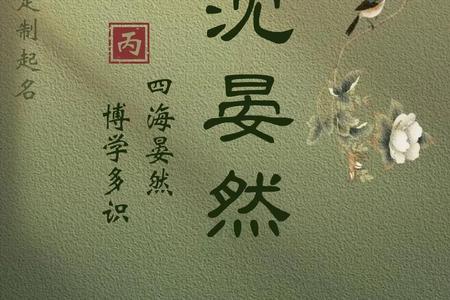 沈晏然
丙
四海晏然
博学多识
定制起名